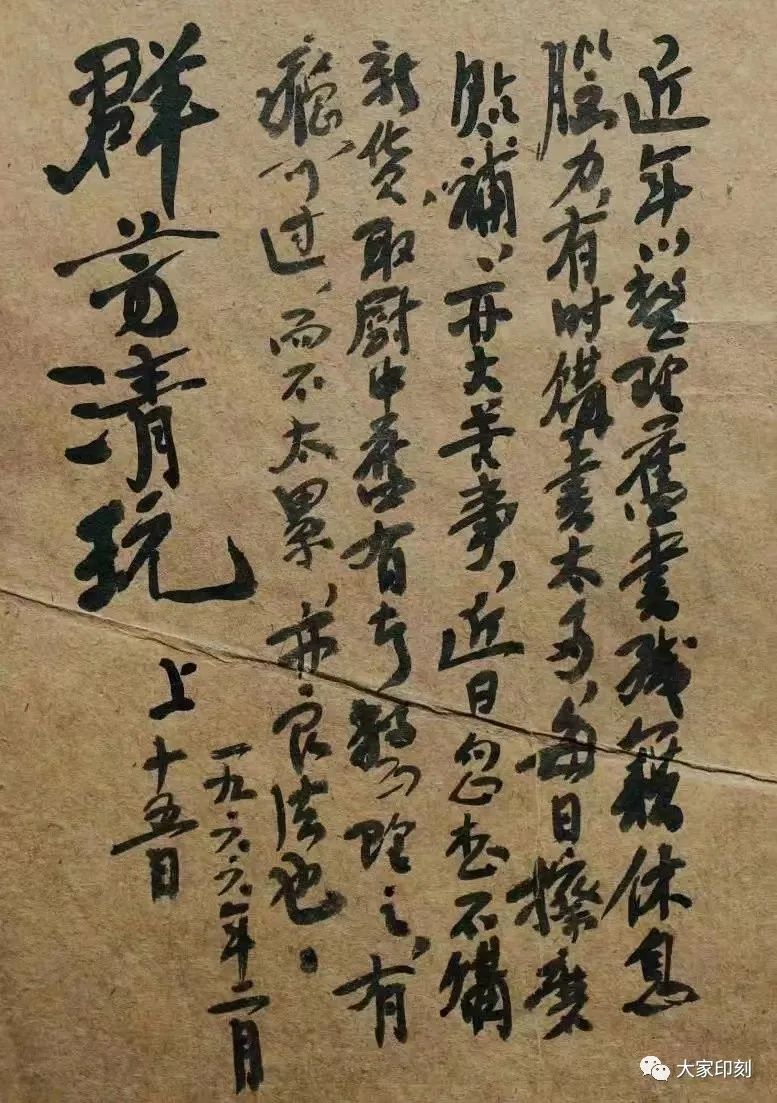 近年以整理舊書残籍休息
腦力,有时購書太多,每日擦磨
贴補,亦大苦事,近日忽想不購
新货,取厨中舊有者整理之,有
瘾可过,而不太累,亦良法也。
一九六六年二月
十五日
群芳清玩 上
大家印刻